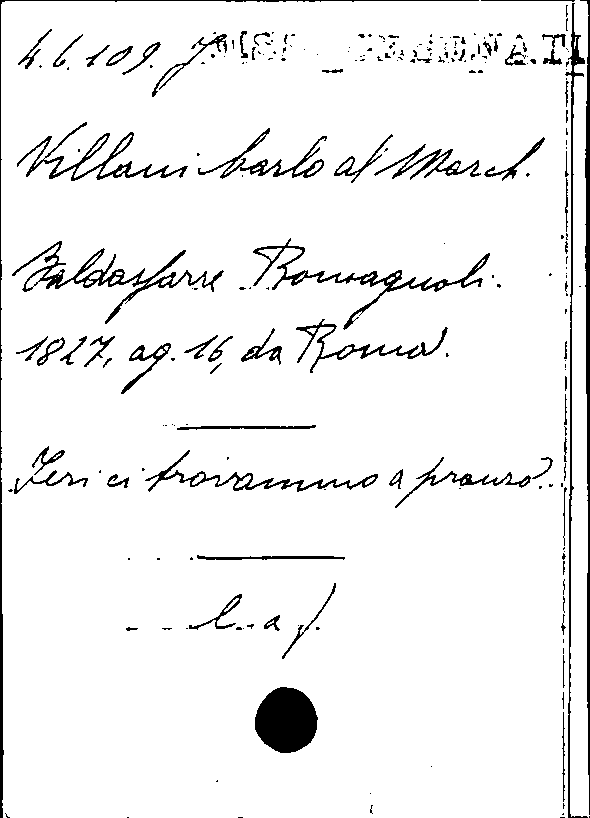 4.6.109. J
Villani Carlo al March.
Baldassarre Romagnoli.
1827, ag. 16, da Roma.
Ieri ci trovammo a pranzo.
L. a f.